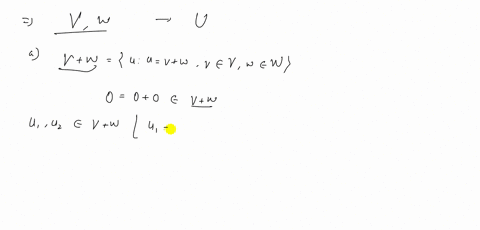 ⇒) V, w → U
a) V+w = { u : u = v+w, v ∈ V, w ∈ W }
0 = 0+0 ∈ V+w
u₁, u₂ ∈ V+w [ u₁ -